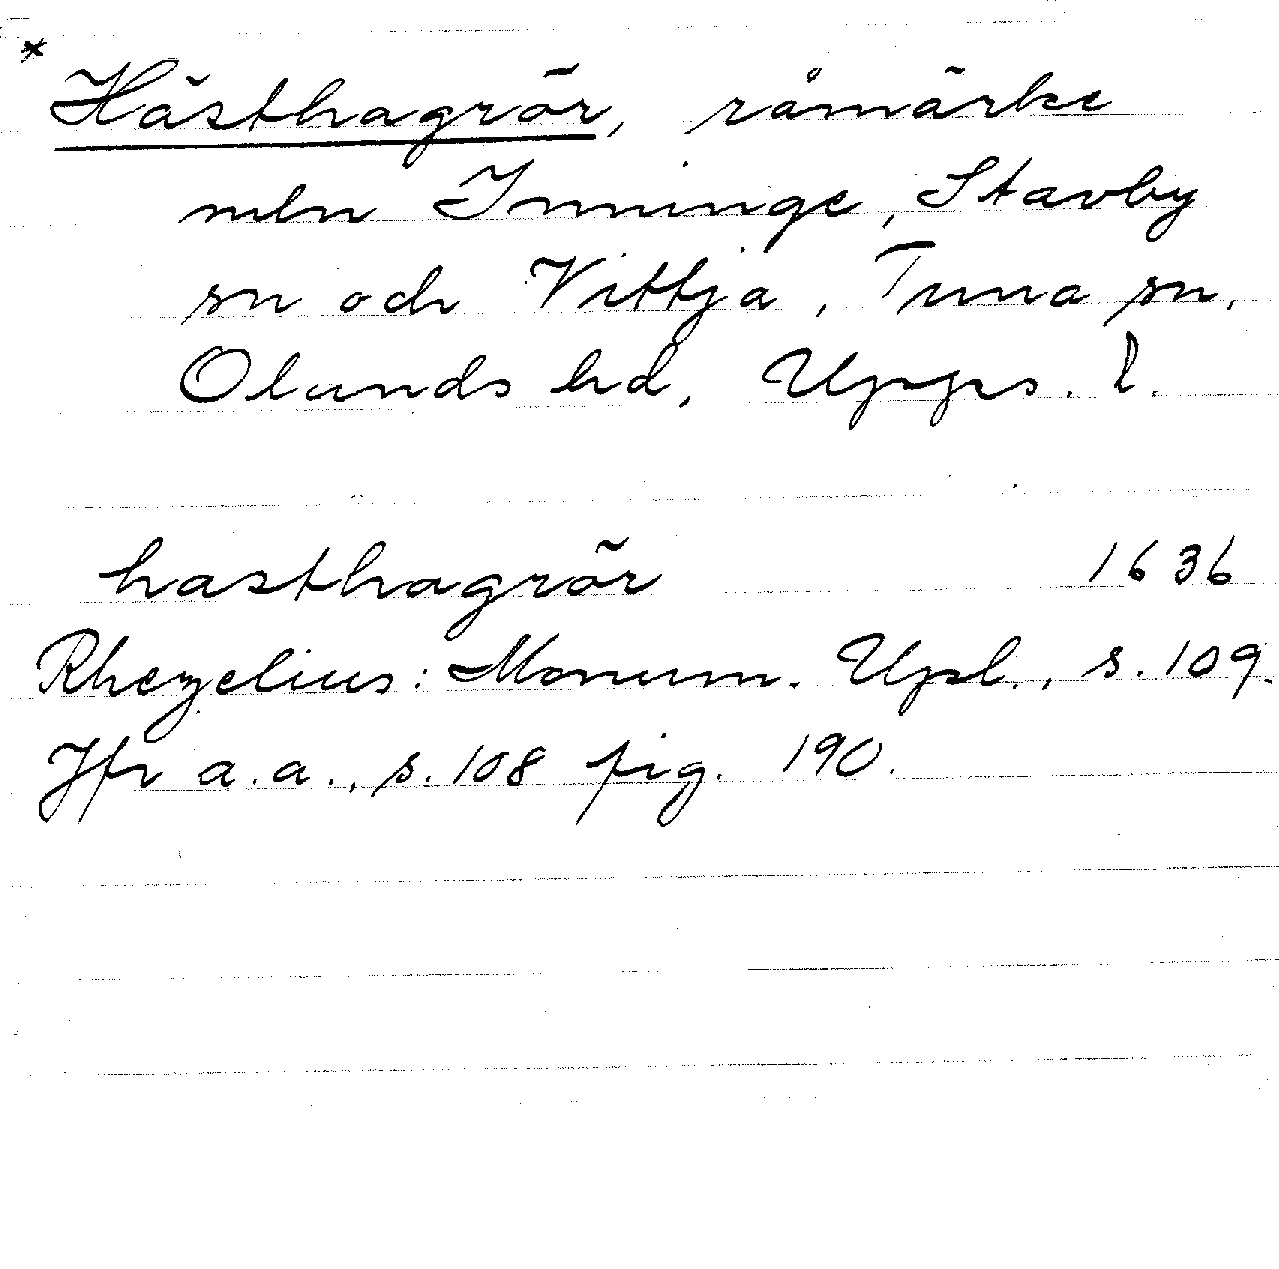 * Hästhagrör, råmärke
mln Inninge, Stavby
sn och Vittja, Tuna sn,
Olands hd, Upps. l.
hasthagrör 1636
Rhezelius: Monum. Upl., s. 109.
Jfr a.a., s. 108 fig. 190.